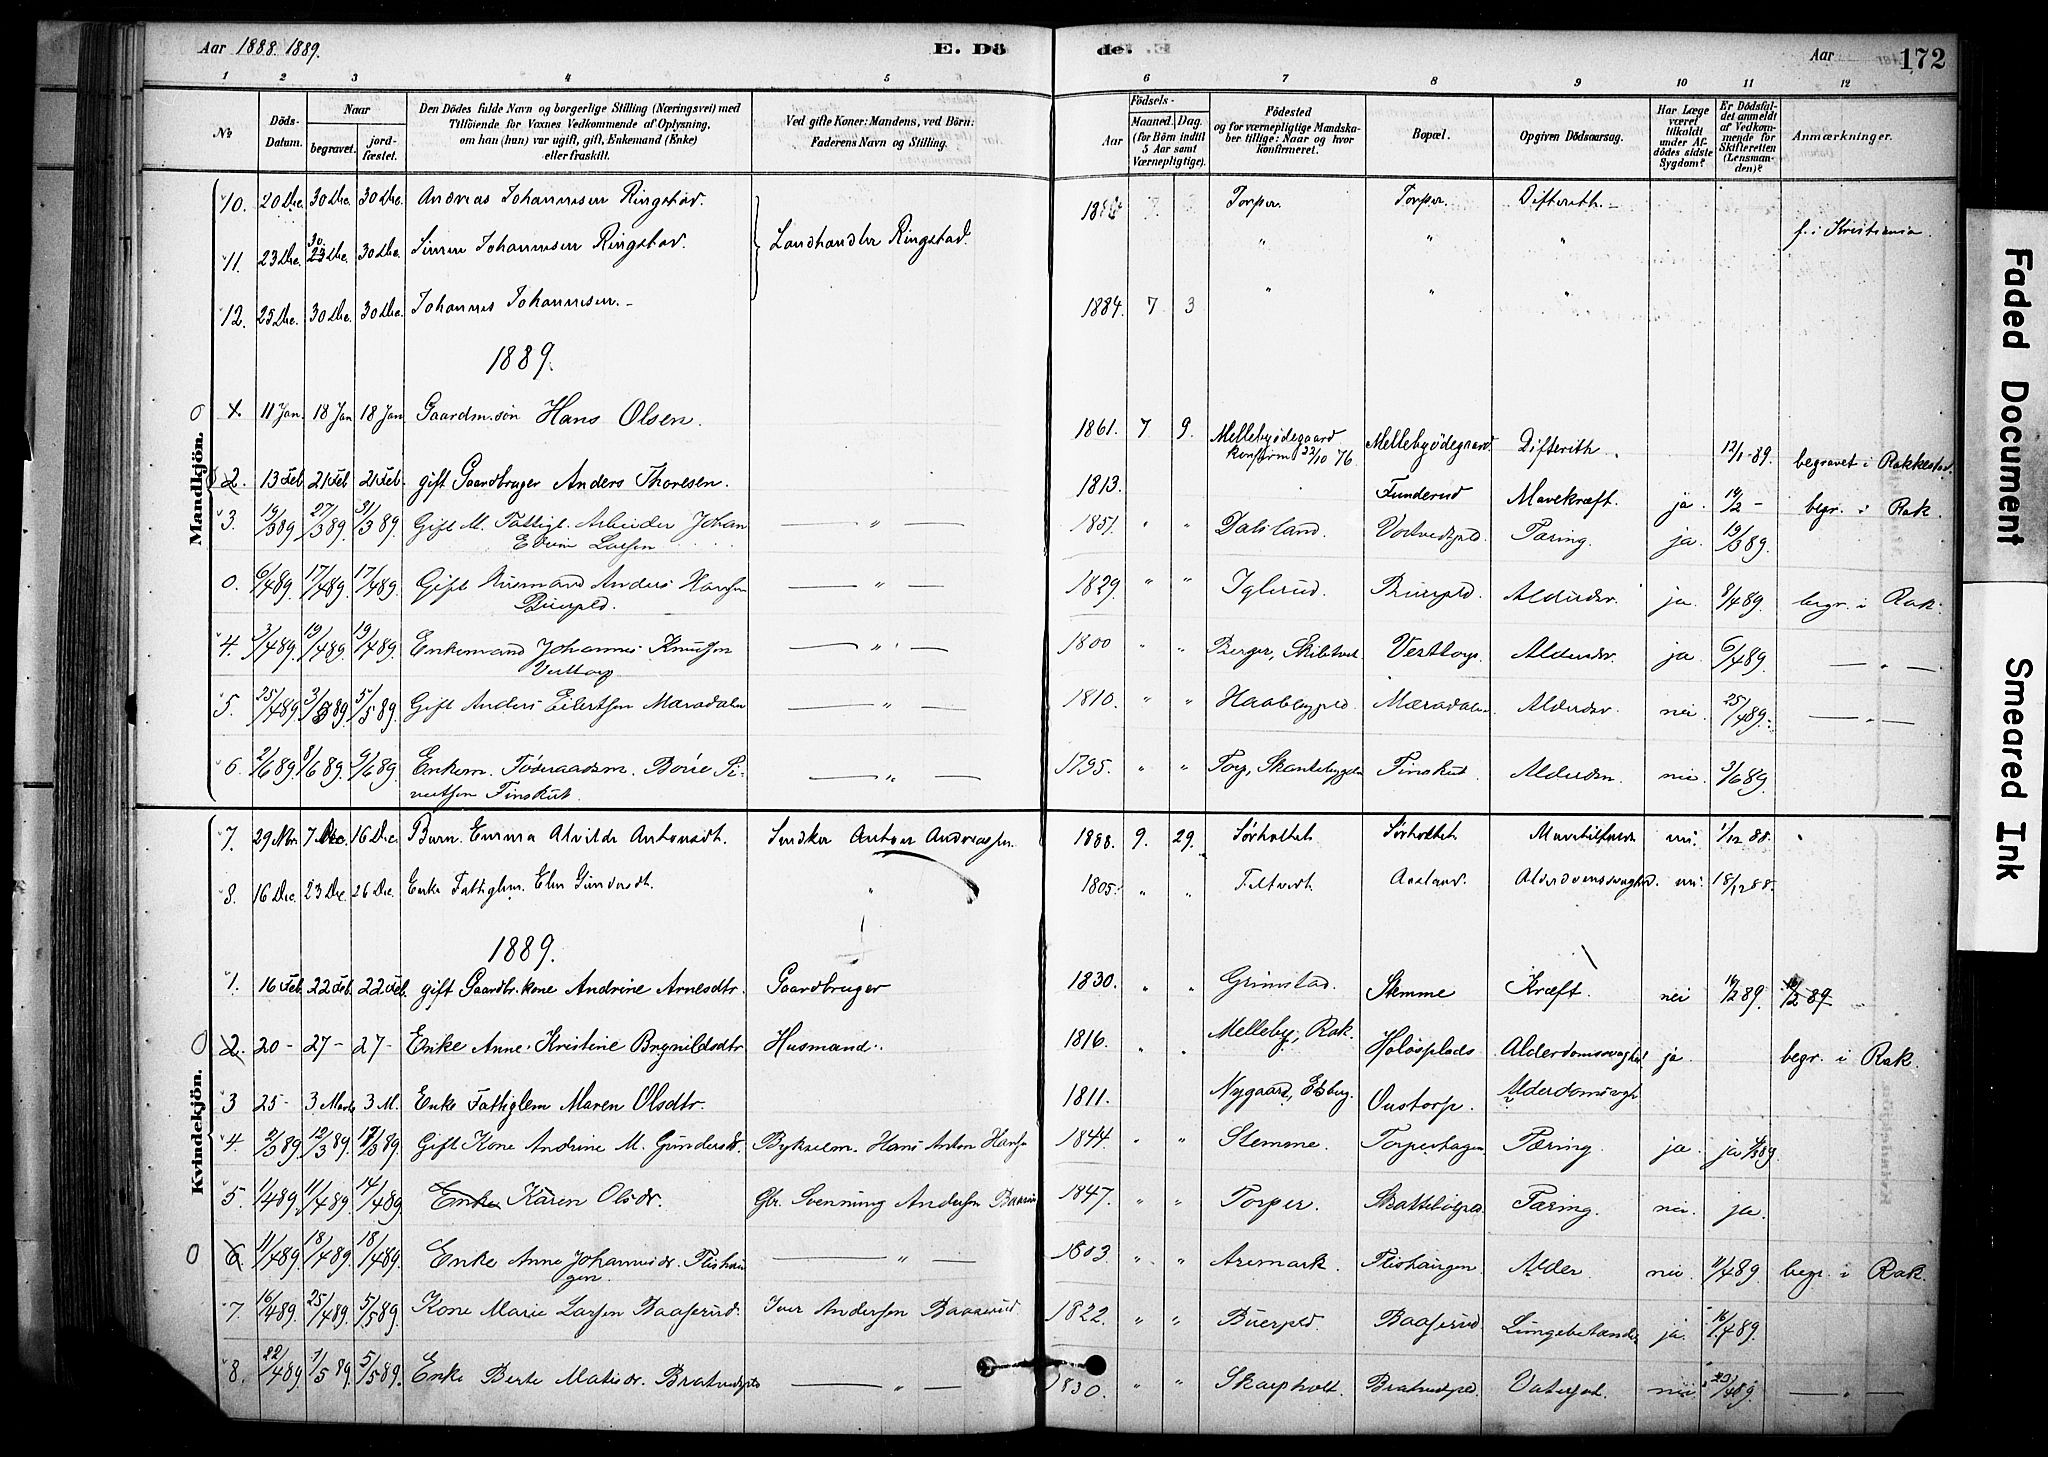 Aar 1888. 1889.
E. Dö
de.
Aar
172
1 2 3 4 5 6 7 8 9 10 11 12
No
Döds-Datum.
Naar
begravet.
jordfæstet.
Den Dödes fulde Navn og borgerlige Stilling (Næringsvei) med Tilföiende for Voxnes Vedkommende af Oplysning, om han (hun) var ugift, gift, Enkemand (Enke) eller fraskilt.
Ved gifte Koner: Mandens, ved Börn: Faderens Navn og Stilling.
Födsels-
Aar
Maaned. Dag.
(for Börn indtil 5 Aar samt Værnepligtige).
Födested og for værnepligtige Mandskaber tillige: Naar og hvor Konfirmeret.
Bopæl.
Opgiven Dödsaarsag.
Har Læge været tilkaldt under Afdödes sidste Sygdom?
Er Dödsfaldet anmeldt af Vedkommende for Skifteretten (Lensmanden)?
Anmærkninger.
Mandkjön.
10. 20 Dec. 30 Dec. 30 Dec. Andreas Johannesen Ringstad. Torper. Torper. Difterith.
11. 23 Dec. 30 Dec. 30 Dec. Johannesen Ringstad. Landhandler Ringstad. " " " f. i Kristiania.
12. 25 Dec. 30 Dec. 30 Dec. Johannes Johannesen. 1884. 7 3 " " "
1889.
1. 11 Jan. 18 Jan 18 Jan Gaardm. søn Hans Olsen. 1861. 7 9. Mellebyødegaard konfirm 22/10 76 Mellebyødegaard. Difterith. 12/1-89. begravet i Rakkestad.
2. 13 Feb. 21 Feb 21 Feb. gift Gaardbruger Anders Thoresen. 1813. Funderud Mavekræft. ja 14/2 - begr. i Rak.
3. 19/3 89 27/3 89. 31/3 89. Gift M. Fattigl. Arbeider Johan Edvin Larsen " 1851. " " Dalsland. Tæring. ja. 19/3 89.
0. 6/4 89. 17/4 89. 17/4 89. Gift Husmand Anders Hansen Buerpld. " 1829. " " Iglerud. Buerpld. Aldersv. ja. 8/4 89. begr. i Rak.
4. 3/4 89. 19/4 89. 19/4 89. Enkemand Johannes Knudsen Vesttorp " 1800 " " Berger, Skibtvet. Vesttorp. Aldersv. ja 6/4 89. "
5. 25/4 89. 3/5 89. 5/5 89. Gift Anders Eilertsen Maradalen " 1810. " " Haabbypld. Mæradalen. Aldersv. nei. 25/4 89. "
6. 2/6 89. 8/6 89. 9/6 89. Enkem. Föderaadsm. Finskut. " 1795. " " Torp, Finskut. Aldersv. nei. 3/6 89.
Kvindekjön.
7. 29 Nov. 7 Dec. 16 Dec. Barn Emma Alvilde Antonsdt. Snedker Anton Andreassen. 1888. 9. 29. Sørholtet. Sørholtet. nei. 1/12 88.
8. 16 Dec. 23 Dec 26 Dec. Enke Fattiglem. Elen Gundersdt. " 1805. " " Teltvedt. Aaseland. Alderdomssvaghed. nei. 18/12 88.
1889.
1. 16 Feb. 22 Feb. 22 Feb. gift Gaardbr. kone Andrine Arnesdtr. Gaardbruger 1830. " " Grimstad. Stemme Kræft. nei 19/2 89. 19/2 89
2. 20 - 27 - 27 - Enke Anne Kristine Brynildsdtr Husmand. 1816. " " Melleby, Rak. Holøsplads Alderdomssvaghed ja begr. i Rak.
3 25 - 3 Marts 3 M. Enke Fattiglem Maren Olsdtr. 1811. Nygaard, Eidsberg. Oustorp. Alderdomssvagh.
4. 2/3 89. 12/3 89. 17/3 89. Gift Kone Andrine M. Gundersdr. Bykselm. Hans Anton Hansen 1844 " " Stemme. Torperhagen Tæring. ja. ja 4/3 89.
5 1/4 89. 11/4 89. 14/4 89. Enke Karen Olsdr. Gbr. Svenning Andersen 1847. " " Torper. Skattebølpld. Tæring. nei. ja.
6 11/4 89. 18/4 89. 18/4 89. Enke Anne Johannesdr. Flishaugen. " 1803. " " Aremark. Flishaugen. Alder. nei. 11/4 89. begr. i Rak.
7. 16/4 89. 25/4 89. 5/5 89. Kone Marie Larsen Baaserud. Iver Andersen Baaserud. 1822. " " Buerpld. Baaserud. Lungebetændelse ja. 16/4 89.
8. 22/4 89. 1/5 89. 5/5 89. Enke Berte Matisdr. Bratvedpld " 1830. " " Skarpholt. Bratvedpld. Vatersot. nei 23/4 89. "
Faded Document
Smeared Ink